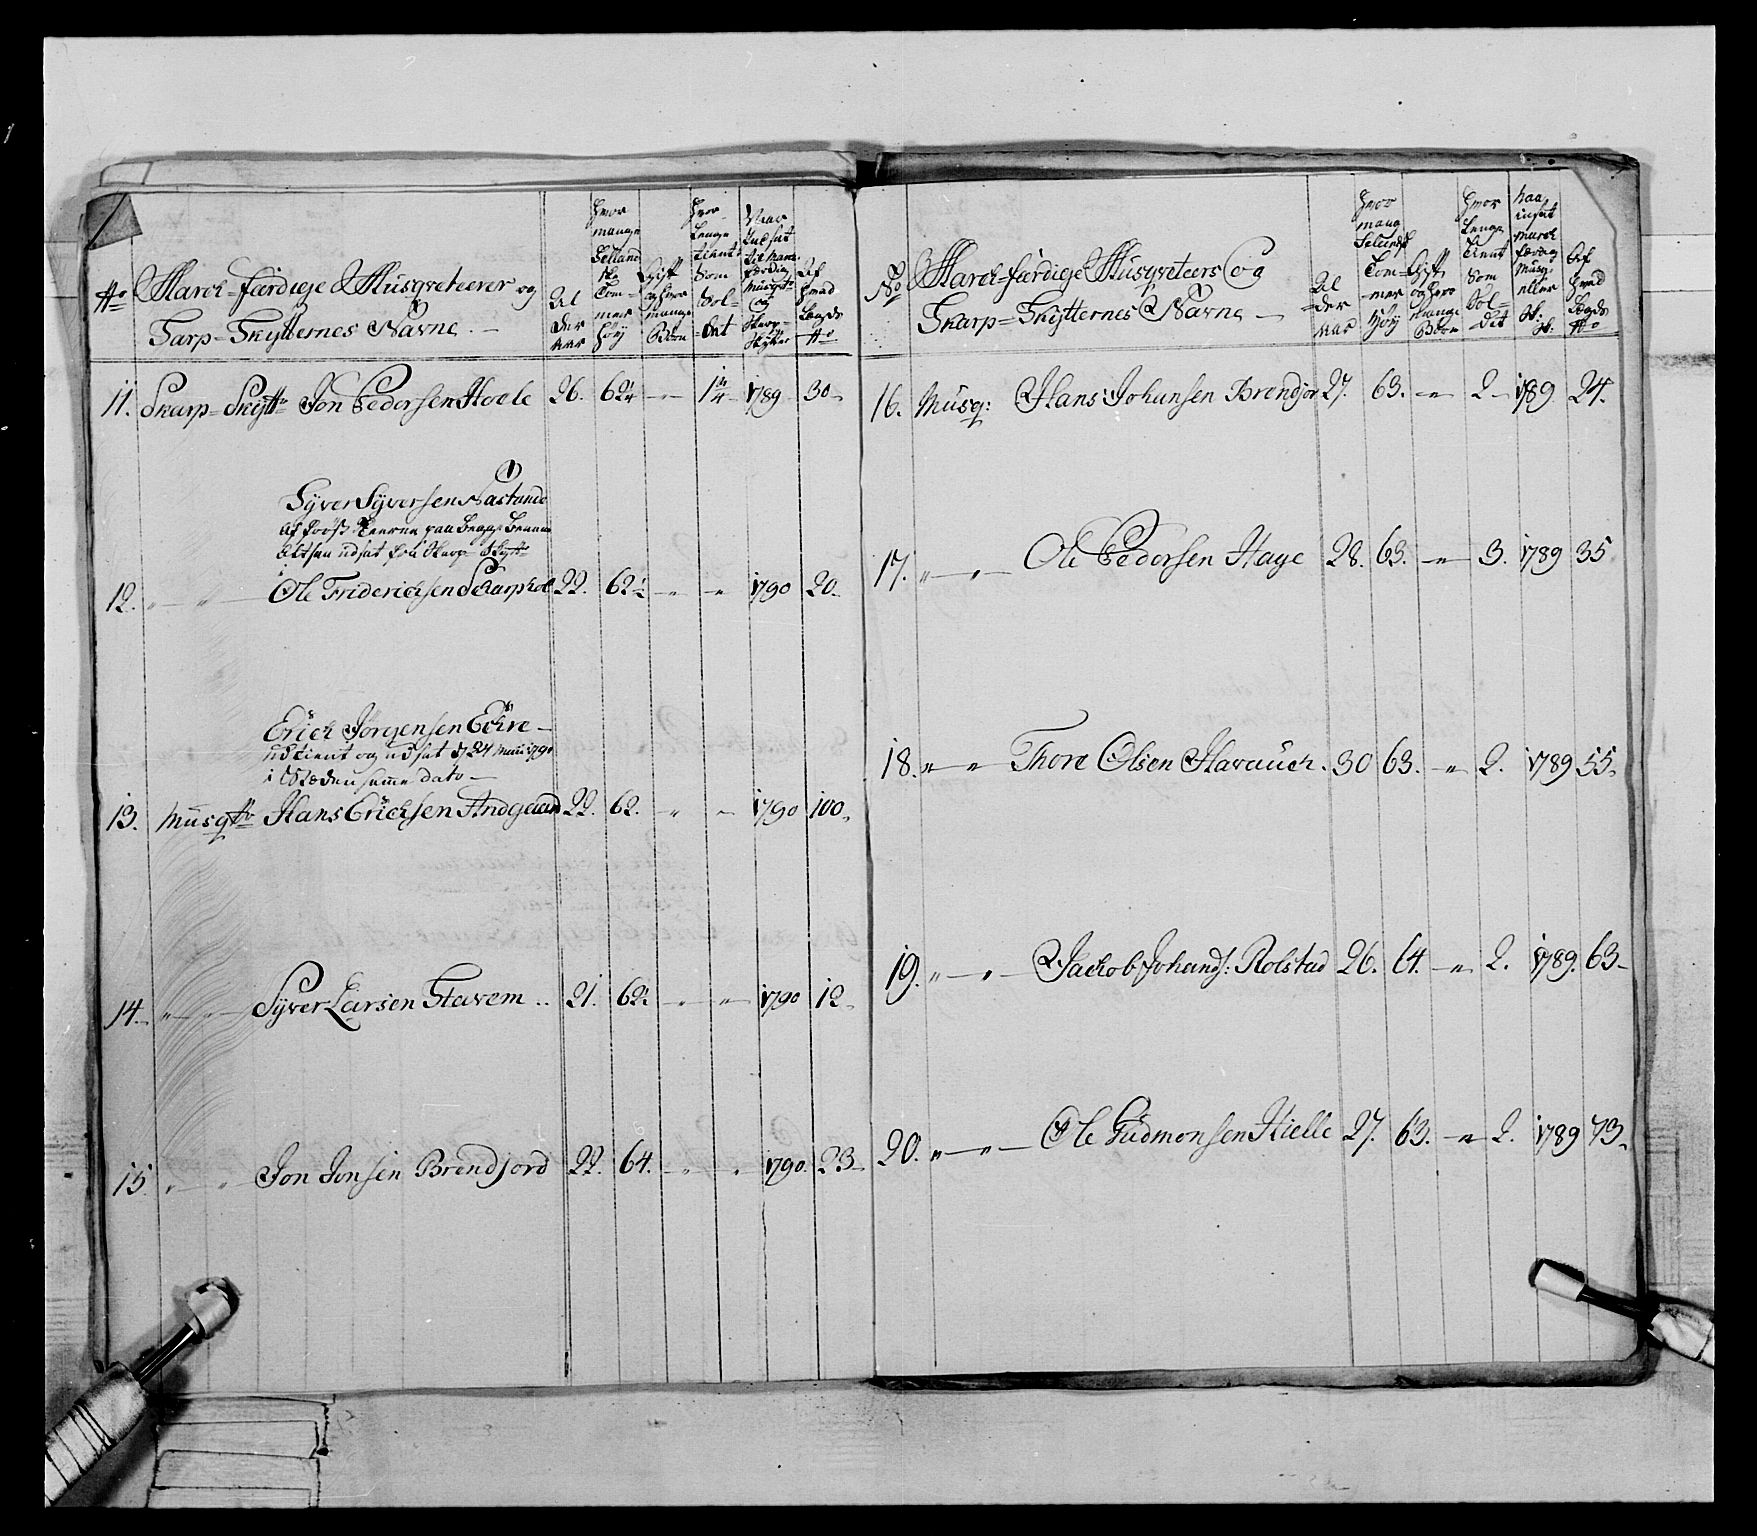 No March-færdige Musqveteerer og
Skarp-Skytternes Navne. —
Al
der
aar
Hvor
mange
Selland
ske
Tom-
mer
høy
Gift
og hvor
mange
Børn
Hvor
Længe
tient
Som
Sol-
dat
Naar
Indsat
til March
færdig
Musqvt
og
Skarp-
Skytter
Af
hvad
Lægds
No
11. Skarp-Skytr Jon Pedersen Hoele 26. 62 1/4 — " — 1 3/4 1789 30
Syver Syversen Nastande
Af Frost i Tæerne paa begge Benene
altsaa udsat fra Skarp Skyttr
12. " — " — Ole Friderichsen Skarphol 22. 62 1/2 — " — " 1790 20.
Erich Jørgensen Echre —
udtient og udsat d 24 Martii 1790
i Stæden samme dato —
13. Musqtr Hans Erichsen Andgaard 22. 62. " " 1790 100.
14. " — " — Syver Larsen Stavem .. 21. 62 1/2 " — " 1790 12.
15. " " Jon Jonsen Brendjord 22. 64. — " — " 1790. 23
No March-færdige Musqveteers og
Skarp-Skytternes Navne —
Al
-der
aar
Hvor
mang
Selandsk
Tom-
-mer
høy
Gift
og hvor
mange
Børn
Hvor
Længe
tient
Som
Sol-
-dat
Naar
insat
March
færdig
Musq:
eller
Sk:
Sk.
Af
hvad
Lægds
No
16. Musq: Hans Johansen Brendjor 27. 63. — " — 2 — 1789 24.
17. " — " — Ole Pedersen Hage 28. 63. — " — 3. 1789 35
18. " — " Thore Olsen Haraueh. 30 63. — " 2. 1789 55.
19. " — " — Jachob Johands: Rolstad 26. 64. — " 2. 1789. 63 —
20. " — " — Ole Gudmonsen Hielle 27. 63. — " 2. 1789 73.